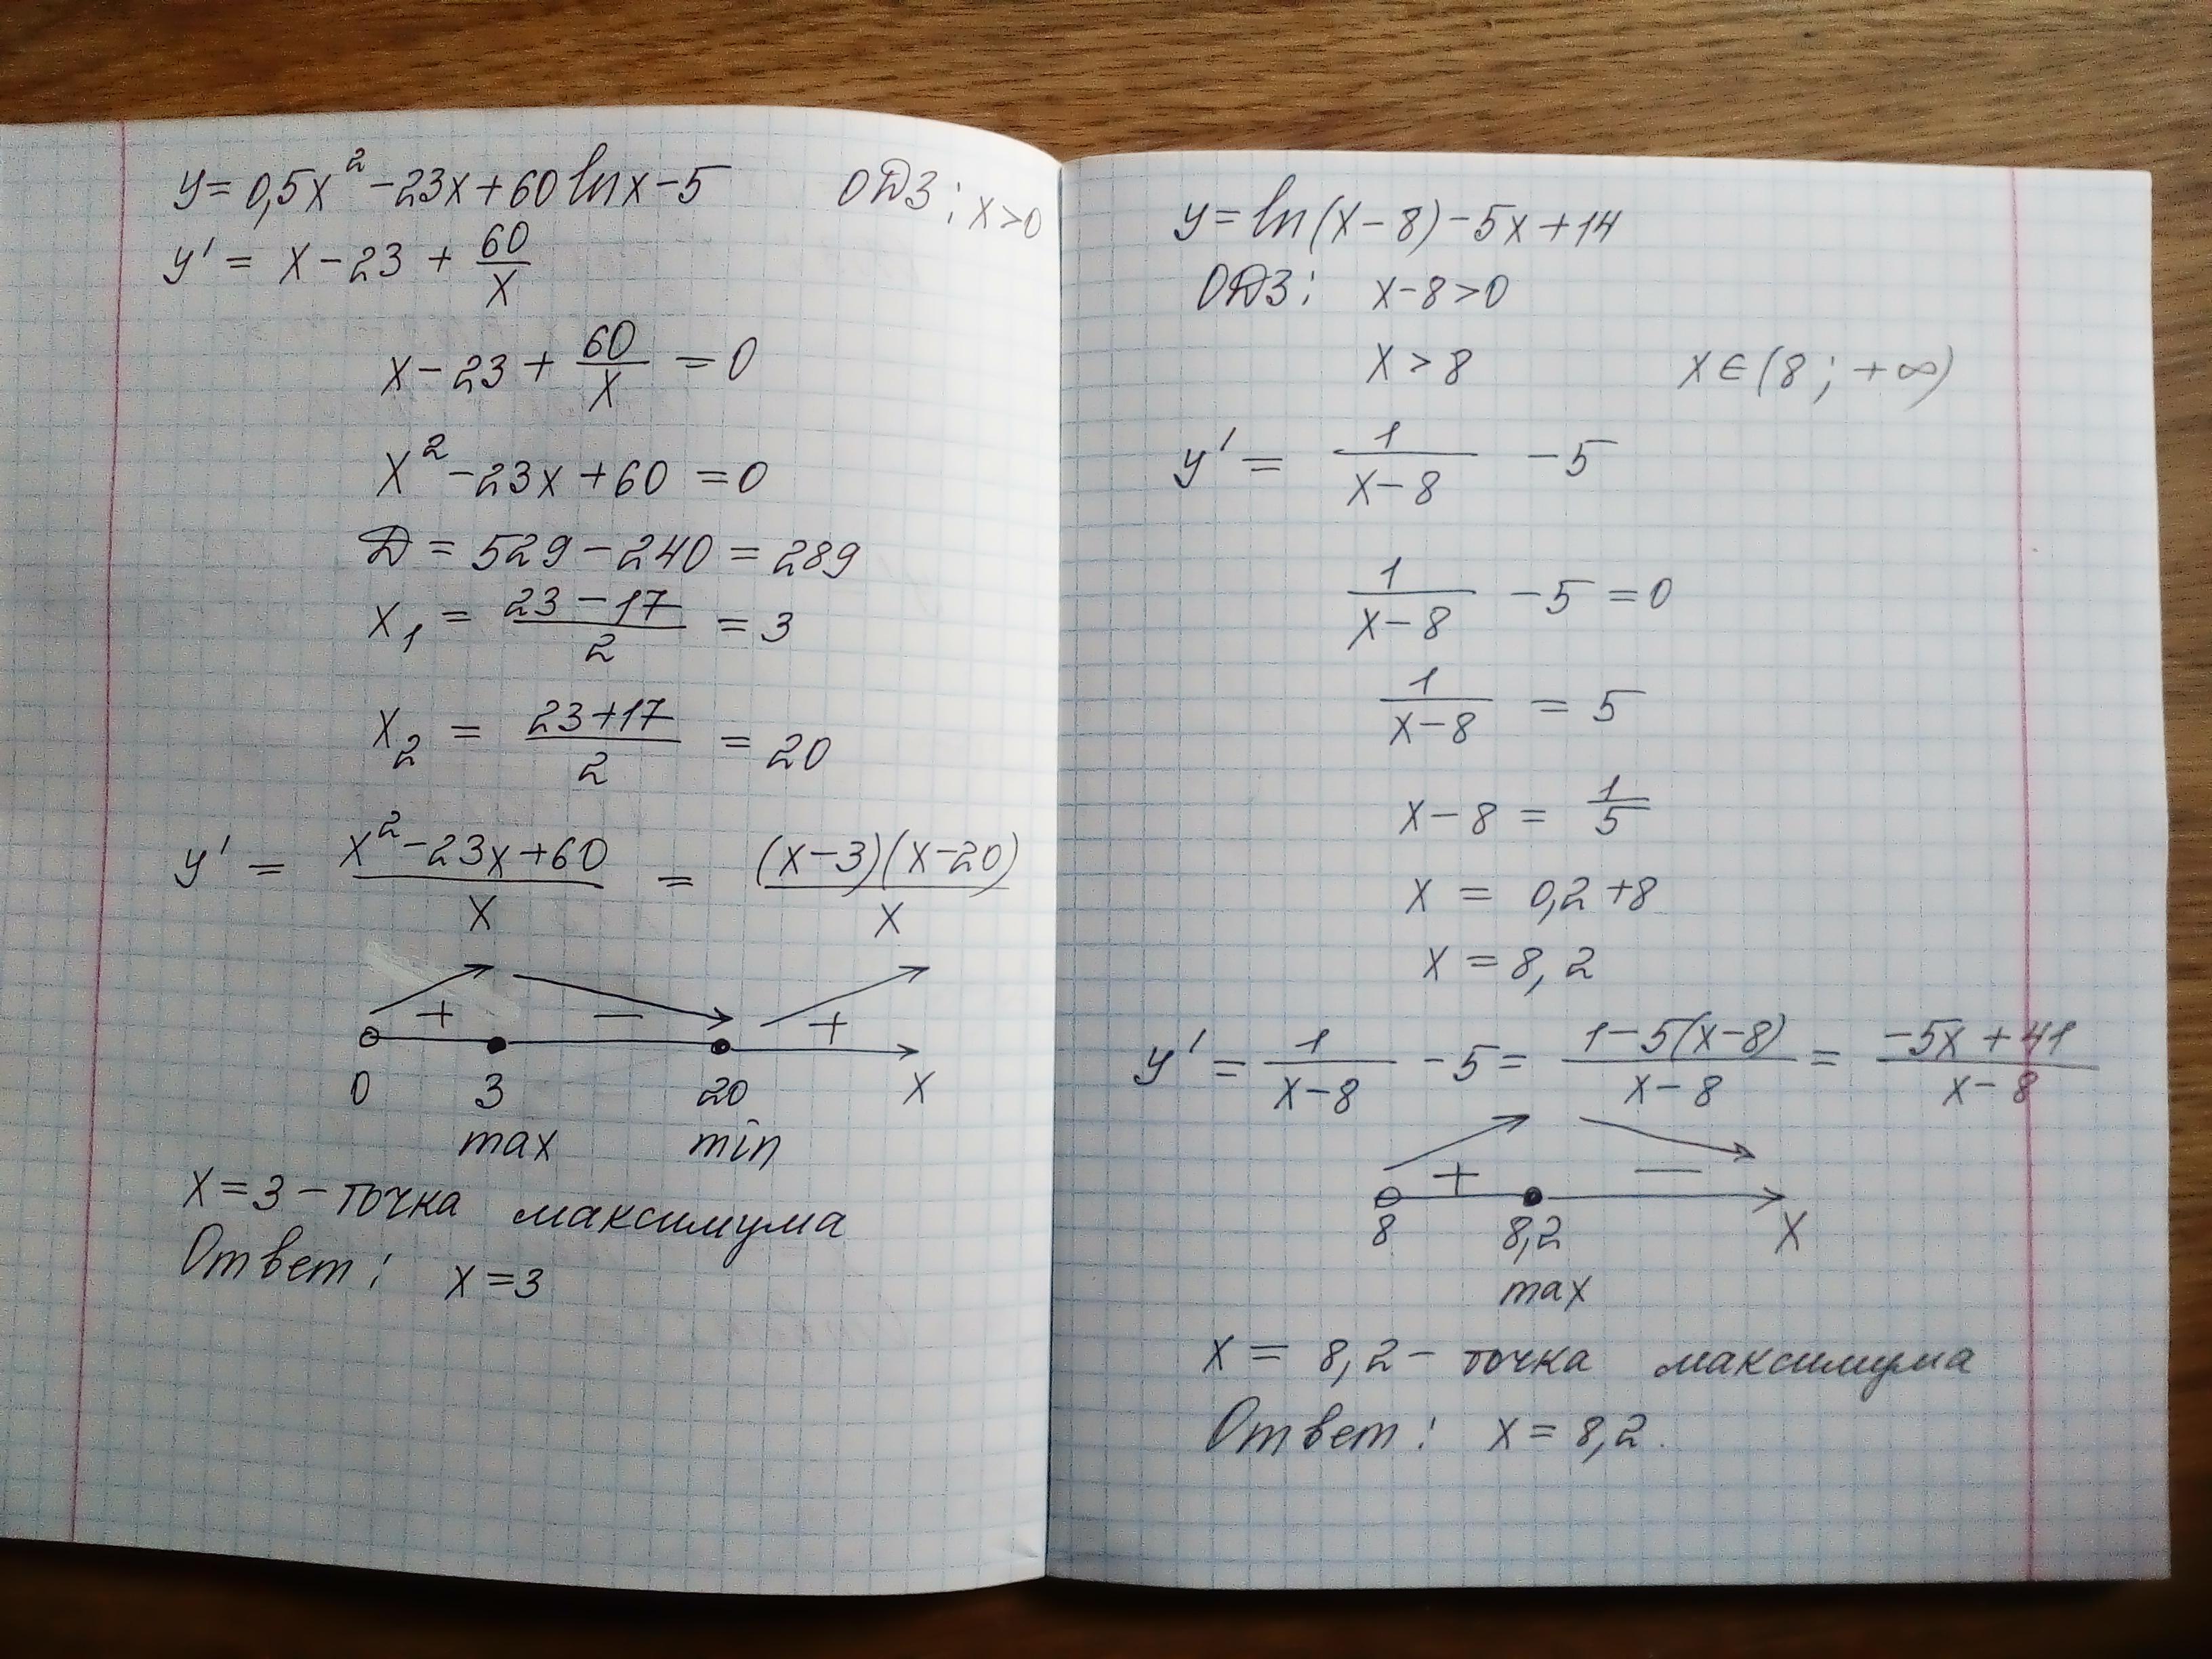 y = 0,5x² - 23x + 60 ln x - 5   ОДЗ: x > 0
y' = x - 23 + 60/x
x - 23 + 60/x = 0
x² - 23x + 60 = 0
Д = 529 - 240 = 289
x₁ = (23 - 17)/2 = 3
x₂ = (23 + 17)/2 = 20
y' = (x² - 23x + 60)/x = ((x - 3)(x - 20))/x
+ − +
0 3 20 x
max min
x = 3 - точка максимума
Ответ: x = 3
y = ln(x - 8) - 5x + 14
ОДЗ: x - 8 > 0
x > 8   x ∈ (8; +∞)
y' = 1/(x - 8) - 5
1/(x - 8) - 5 = 0
1/(x - 8) = 5
x - 8 = 1/5
x = 0,2 + 8
x = 8,2
y' = 1/(x - 8) - 5 = (1 - 5(x - 8))/(x - 8) = (-5x + 41)/(x - 8)
+ −
8 8,2 x
max
x = 8,2 - точка максимума
Ответ: x = 8,2.